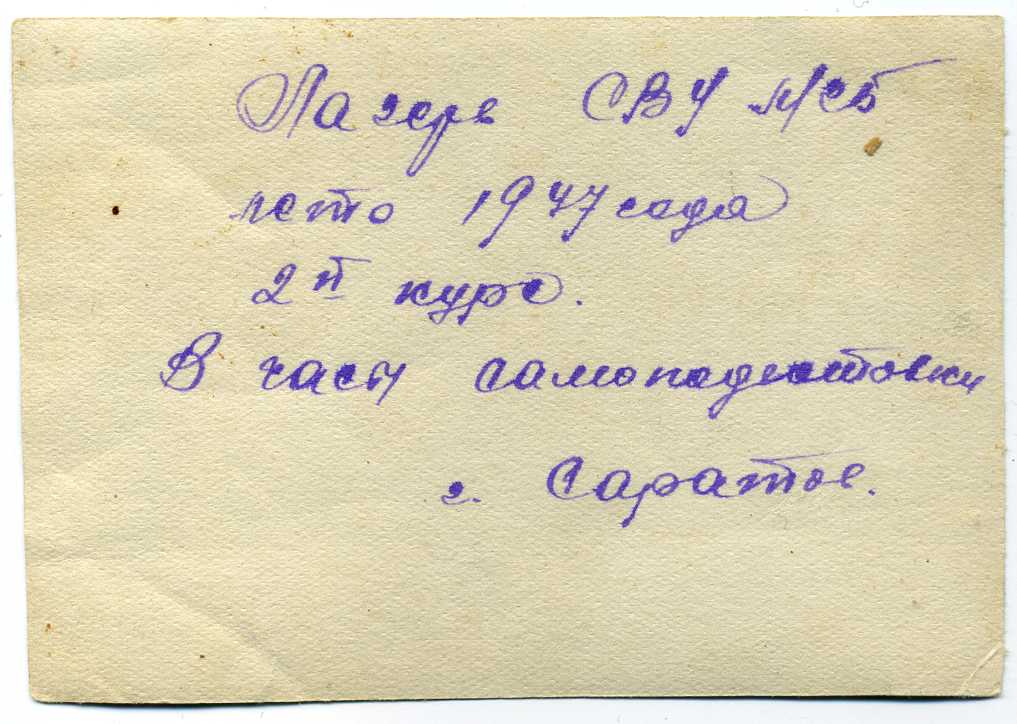 Лагерь СВУ МГБ
лето 1947 года
2й курс.
В часы самоподготовки
г. Саратов.